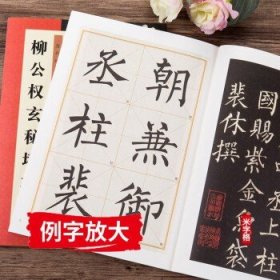 柳公权玄秘塔
朝兼御
丞柱裴
國賜紫金魚袋
裴休撰
米字格
例字放大